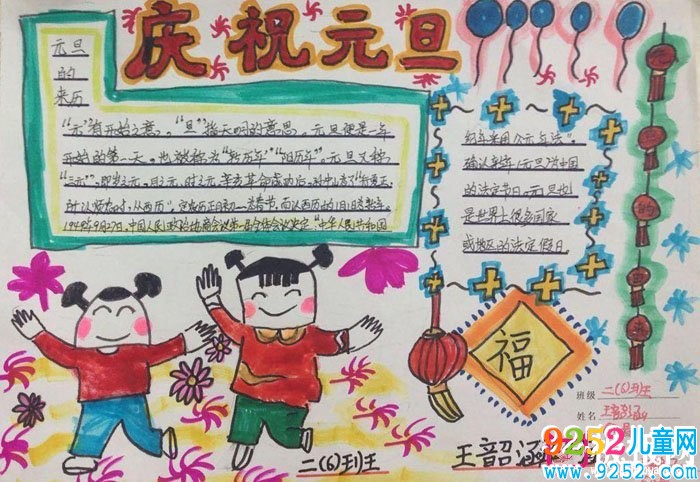 庆祝元旦
元旦
的
来历
"元"有开始之意，"旦"指天明的意思。元旦便是一年
开始的第一天。也被称为"新历年""阳历年"。元旦又称
"三元"，即岁之元、月之元、时之元。辛亥革命成功后，
1949年9月27日，中国人民政治协商会议第一届全体会议决定"中华人民共和国
纪年采用公元年法"，
确认来年1月1日为中国
的法定节日。元旦也
是世界上很多国家
或地区的法定假日
的
福
班级
二(6)班王
姓名
王韵涵
二(6)班王
王韵涵
9252儿童网
www.9252.com